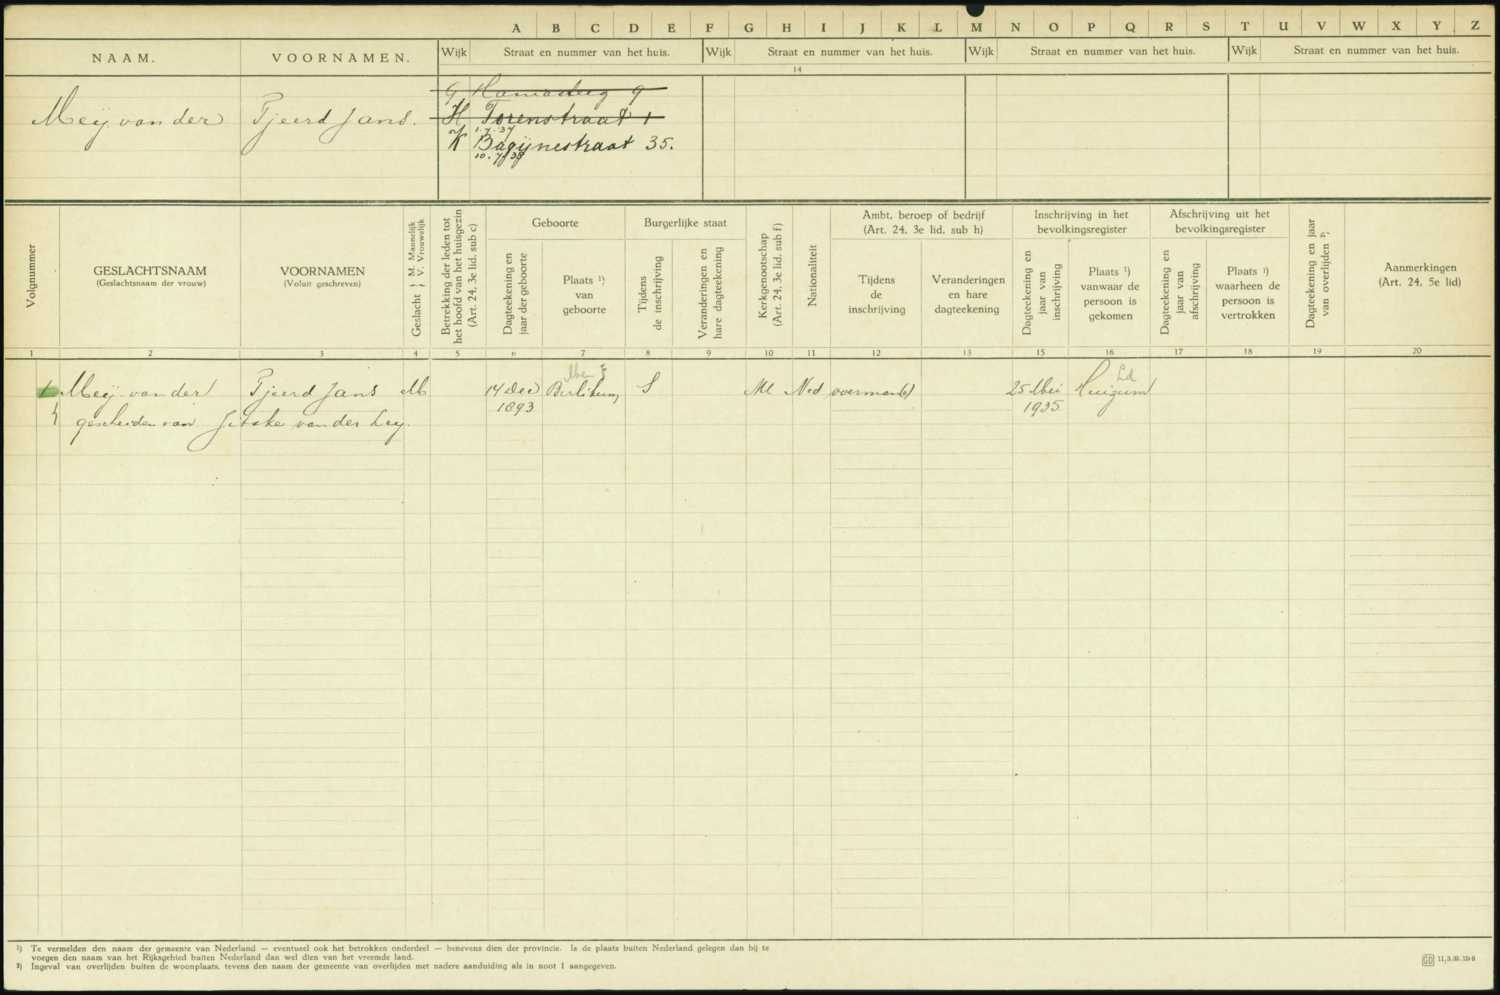 A B C D E F G H I J K L M N O P Q R S T U V W X Y Z
NAAM. VOORNAMEN. Wijk Straat en nummer van het huis. Wijk Straat en nummer van het huis. Wijk Straat en nummer van het huis. Wijk Straat en nummer van het huis.
14
G 9
Meij van der Tjeerd Jans. H Torenstraat 1
1.7.37
K Bagijnestraat 35.
10.7/38
Volgnummer
GESLACHTSNAAM
(Geslachtsnaam der vrouw)
VOORNAMEN
(Voluit geschreven)
Geslacht } M. Mannelijk
V. Vrouwelijk
Betrekking der leden tot
het hoofd van het huisgezin
(Art. 24, 3e lid. sub c)
Geboorte
Dagteekening en
jaar der geboorte
Plaats ¹)
van
geboorte
Burgerlijke staat
Tijdens
de inschrijving
Veranderingen en
hare dagteekening
Kerkgenootschap
(Art. 24, 3e lid. sub f)
Nationaliteit
Ambt, beroep of bedrijf
(Art. 24, 3e lid. sub h)
Tijdens
de
inschrijving
Veranderingen
en hare
dagteekening
Inschrijving in het
bevolkingsregister
Dagteekening en
jaar van
inschrijving
Plaats ¹)
vanwaar de
persoon is
gekomen
Afschrijving uit het
bevolkingsregister
Dagteekening en
jaar van
afschrijving
Plaats ¹)
waarheen de
persoon is
vertrokken
Dagteekening en jaar
van overlijden ²)
Aanmerkingen
(Art. 24, 5e lid)
1 2 3 4 5 6 7 8 9 10 11 12 13 15 16 17 18 19 20
1 Meij van der Tjeerd Jans M 14 Dec Berlikum S Ned voerman 25 Mei Huizum
1893 1935
gescheiden van Jitske van der Leij.
¹) Te vermelden den naam der gemeente van Nederland — eventueel ook het betrokken onderdeel — benevens dien der provincie. Is de plaats buiten Nederland gelegen dan bij te
voegen den naam van het Rijksgebied buiten Nederland dan wel dien van het vreemde land.
²) Ingeval van overlijden buiten de woonplaats, tevens den naam der gemeente van overlijden met nadere aanduiding als in noot 1 aangegeven.